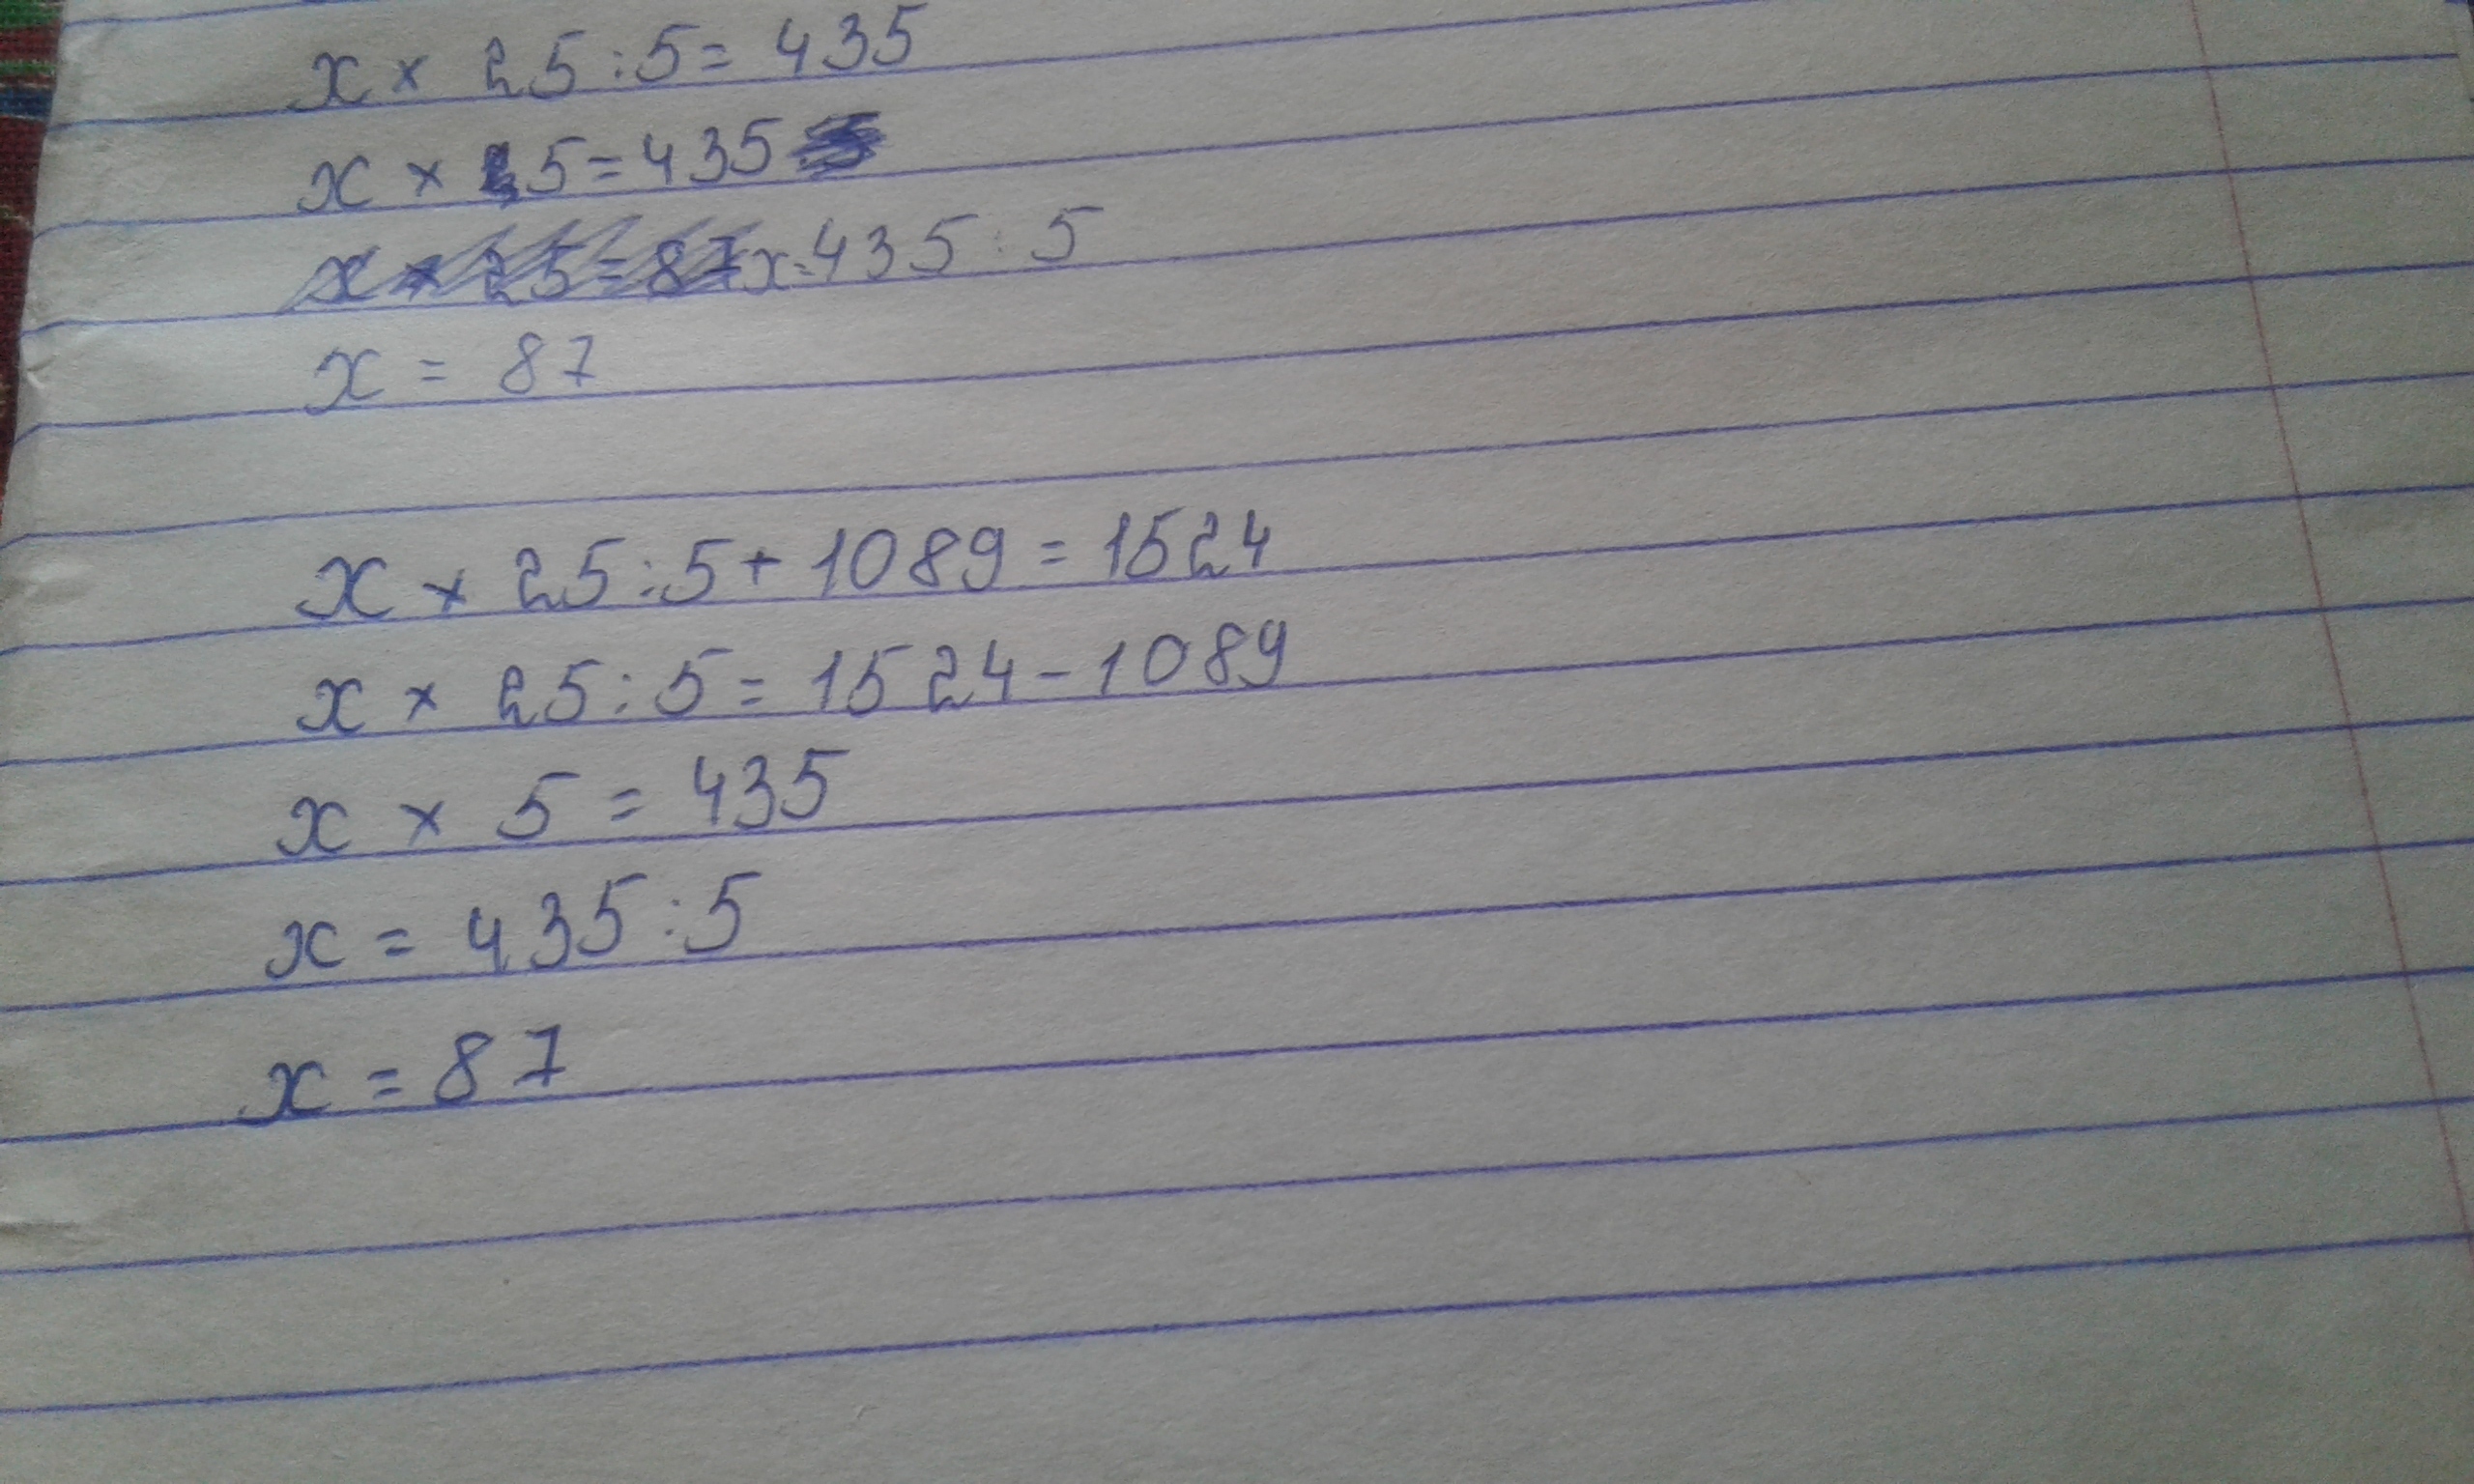 x × 25 : 5 = 435
x × 5 = 435
x = 435 : 5
x = 87
x × 25 : 5 + 1089 = 1524
x × 25 : 5 = 1524 - 1089
x × 5 = 435
x = 435 : 5
x = 87